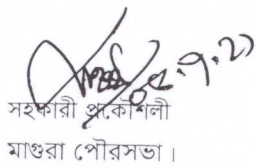 সহকারী প্রকৌশলী
মাগুরা পৌরসভা।